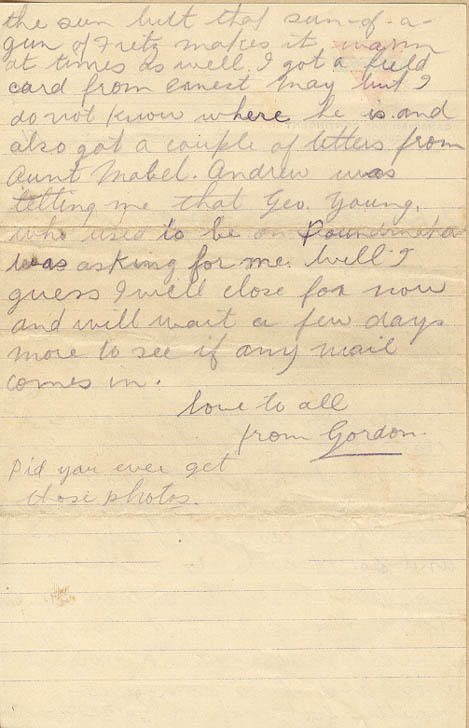 the sun but that sun-of-a-
gun of Fritz makes it warm
at times as well. I got a field
card from ernest May but I
do not know where he is and
also got a couple of letters from
Aunt Mabel. Andrew was
telling me that Geo. Young,
who used to be on
was asking for me. Well I
guess I will close for now
and will wait a few days
more to see if any mail
comes in.
love to all
from Gordon.
Did you ever get
those photos.